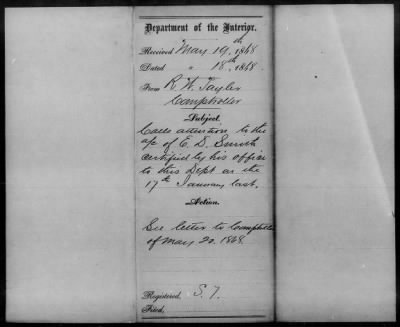 Department of the Interior.
Received May 19th, 1868
Dated " 18th, 1868.
From R. W. Tayler
Comptroller
Subject.
Calls attention to the
a/c of E. D. Smith
certified by his office
to this Dept on the
17th January last.
Action.
See letter to Comptroller
of May 20. 1868.
Registered, S. 7.
Filed,